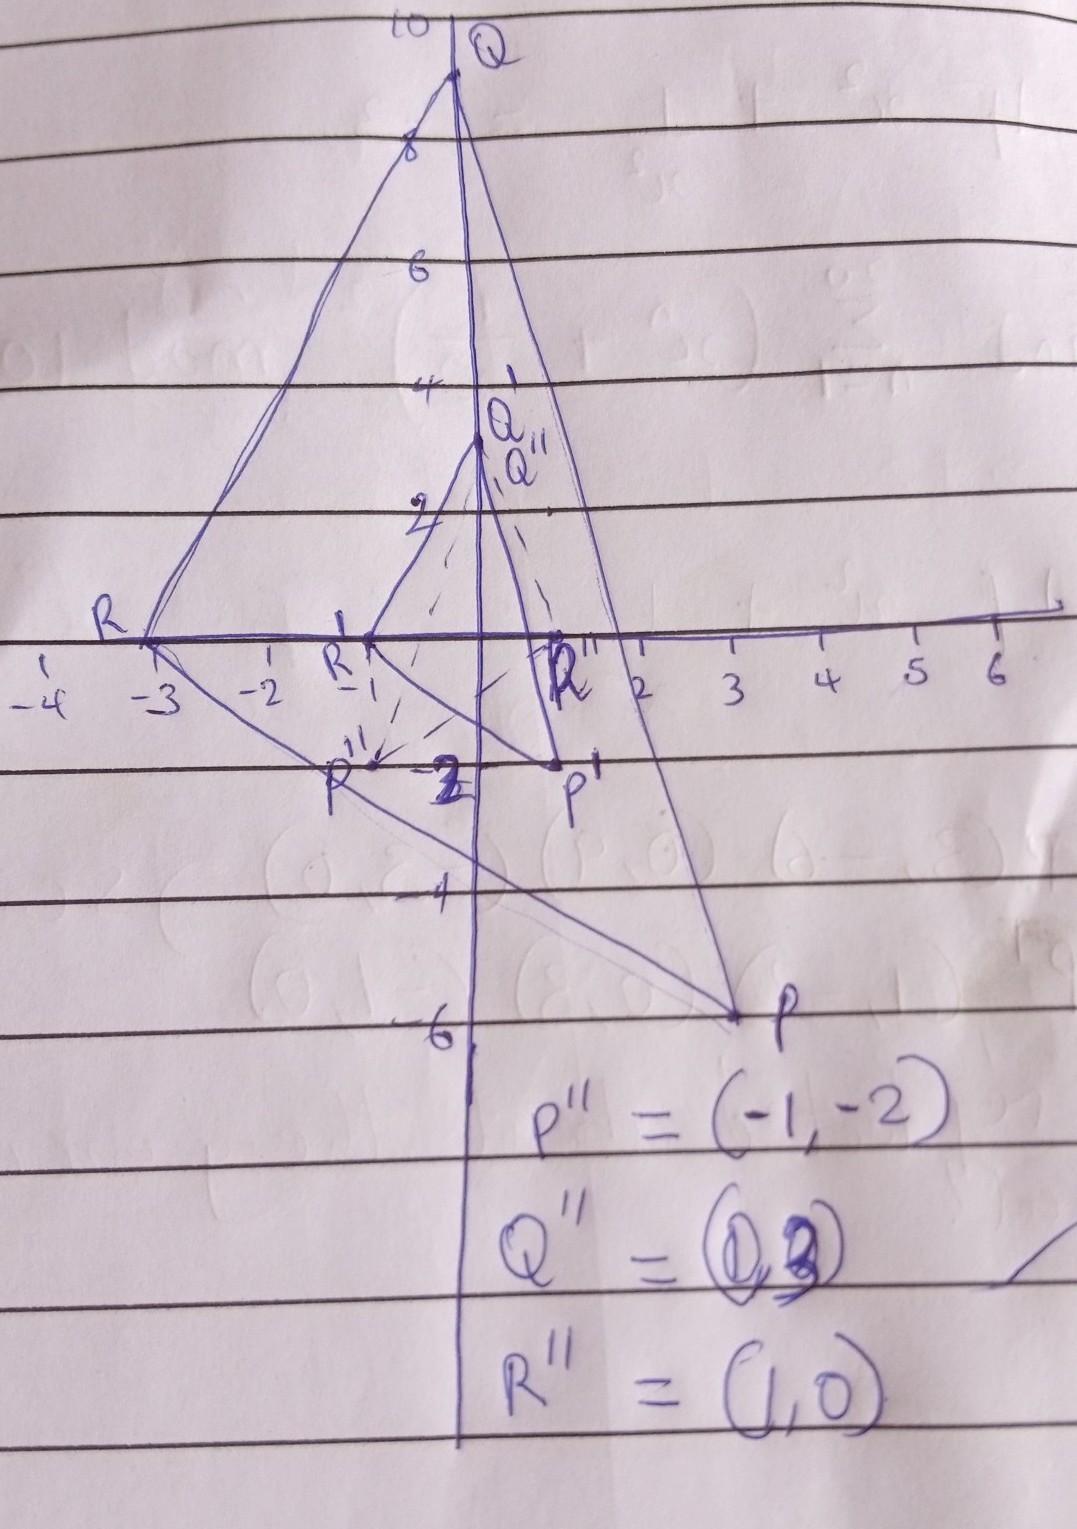 10
Q
8
6
4
Q'
Q''
2
R
R'
R''
-4 -3 -2 -1 2 3 4 5 6
P'' -2 P'
-4
-6 P
P'' = (-1, -2)
Q'' = (0, 3)
R'' = (1, 0)